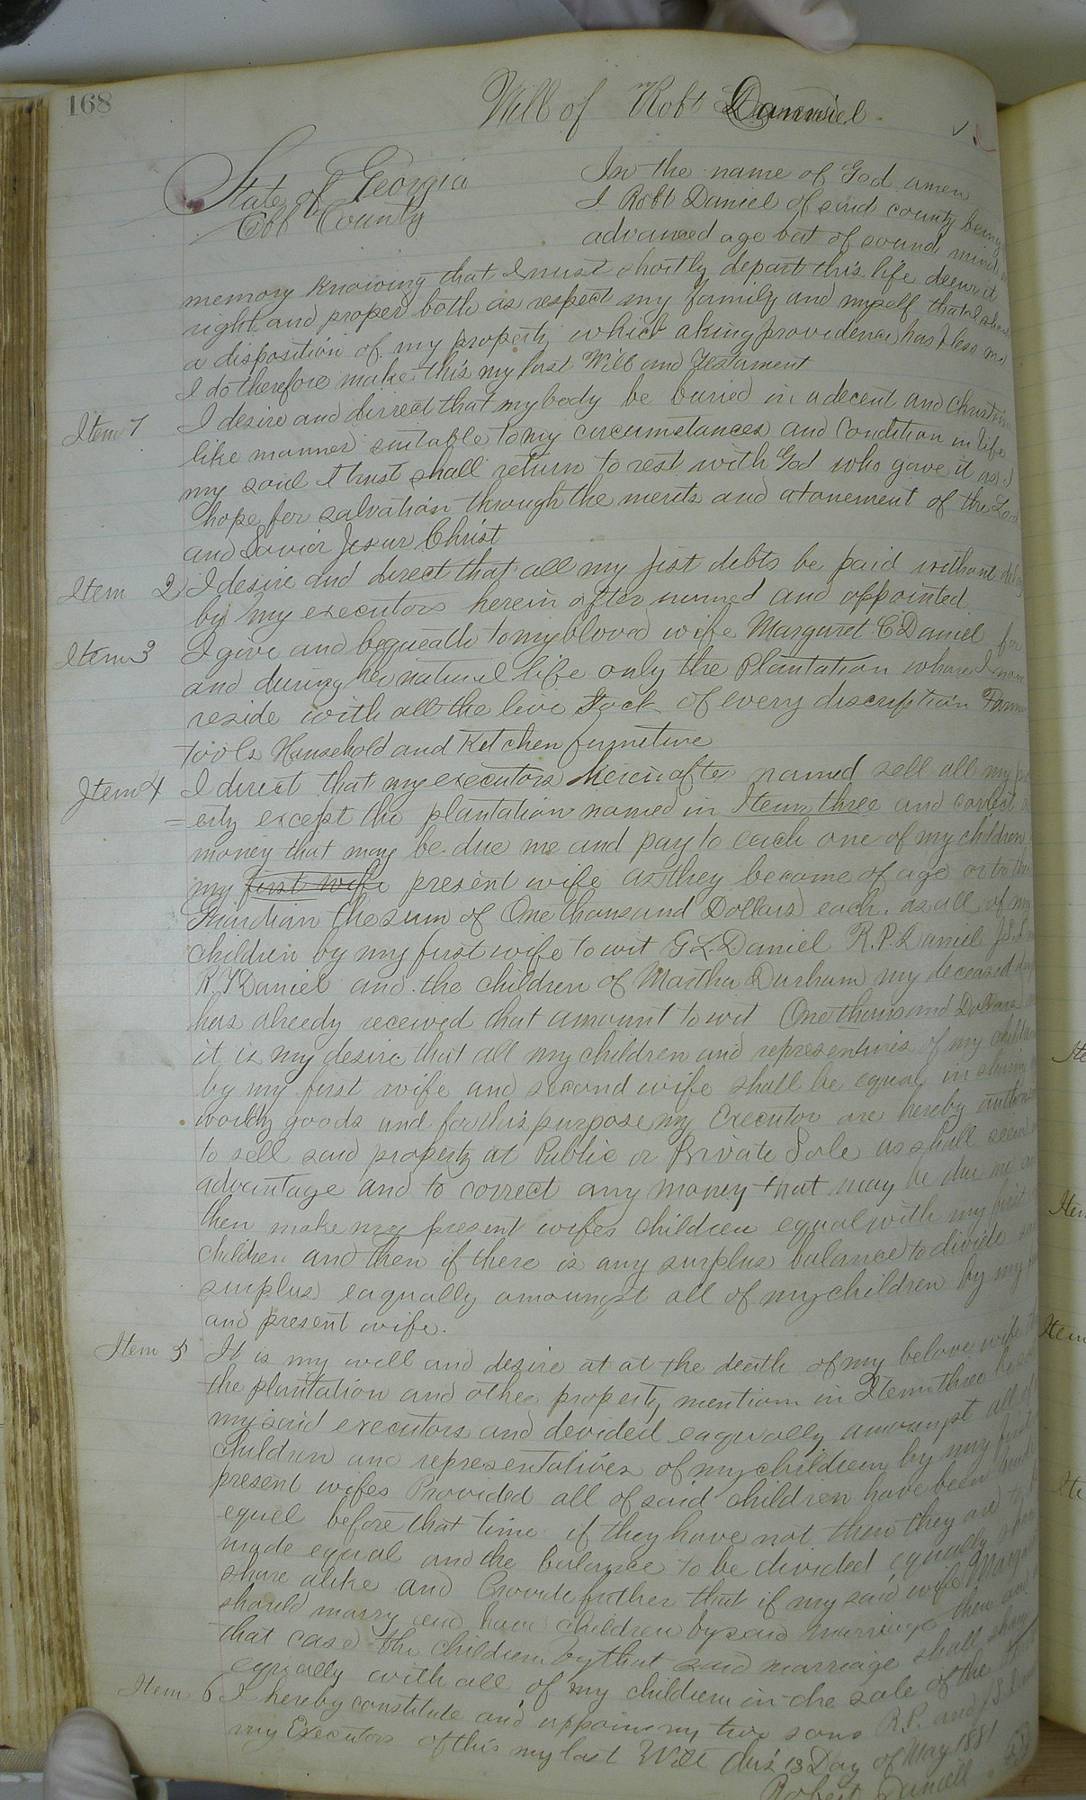 168
Will of Robt Danniel
State of Georgia
Cobb County
In the name of God amen
I Robt Daniel of said county being
advanced age but of sound mind
memory knowing that I must shortly depart this life deem it
right and proper both as respect my family and myself that I
a disposition of my property which a king providence has
I do therefore make this my last Will and Testament
Item 1 I desire and direct that my body be buried in a decent and Christian
like manner suitable to my circumstances and condition in life
my soul I trust shall return to rest with God who gave it as I
hope for salvation through the merits and atonement of the Lord
and Savior Jesus Christ
Item 2 I desire and direct that all my just debts be paid without
by my executors herein after named and appointed
Item 3 I give and bequeath to my beloved wife Margaret C Daniel for
and during her natural life only the Plantation where I now
reside with all the live stock of every discription
tools Household and Kitchen furniture
Item 4 I direct that my executors herein after named sell all my
=erty except the plantation named in Item three and
money that may be due me and pay to each one of my children
my first wife present wife as they become of age or to
Guardian the sum of One thousand Dollars each. as all of my
children by my first wife to wit G L Daniel R. P. Daniel J S
R. Y Daniel and the children of Martha Durham my deceased
has already received that amount to wit One thousand Dollars
it is my desire that all my children and representives of my children
by my first wife and second wife shall be equal in
worldly goods and for this purpose my Executor are hereby
to sell said property at Public or Private Sale as shall seem
advantage and to correct any money that may be due me
then make my present wifes children equal with my first
children and then if there is any surplus balance to divide
surplus eaqually amoungst all of my children by my
and present wife.
Item 5 It is my will and desire at at the death of my belove wife
the plantation and other property mention in Item three
my said executors and devided eaqually amoungst all
children and representatives of my children by my first
present wifes Provided all of said children have been made
equel before that time if they have not then they are to
made equal and the balance to be divided equally
share alike and Provide further that if my said wife
should marry and have children by said marriage then
that case the children by that said marriage shall share
equally with all of my children in the sale of the
Item 6 I hereby constitute and appoint my two sons R. P. and J. S.
my Executors of this my last Will this 13 Day of May 1881
Robert Daniell